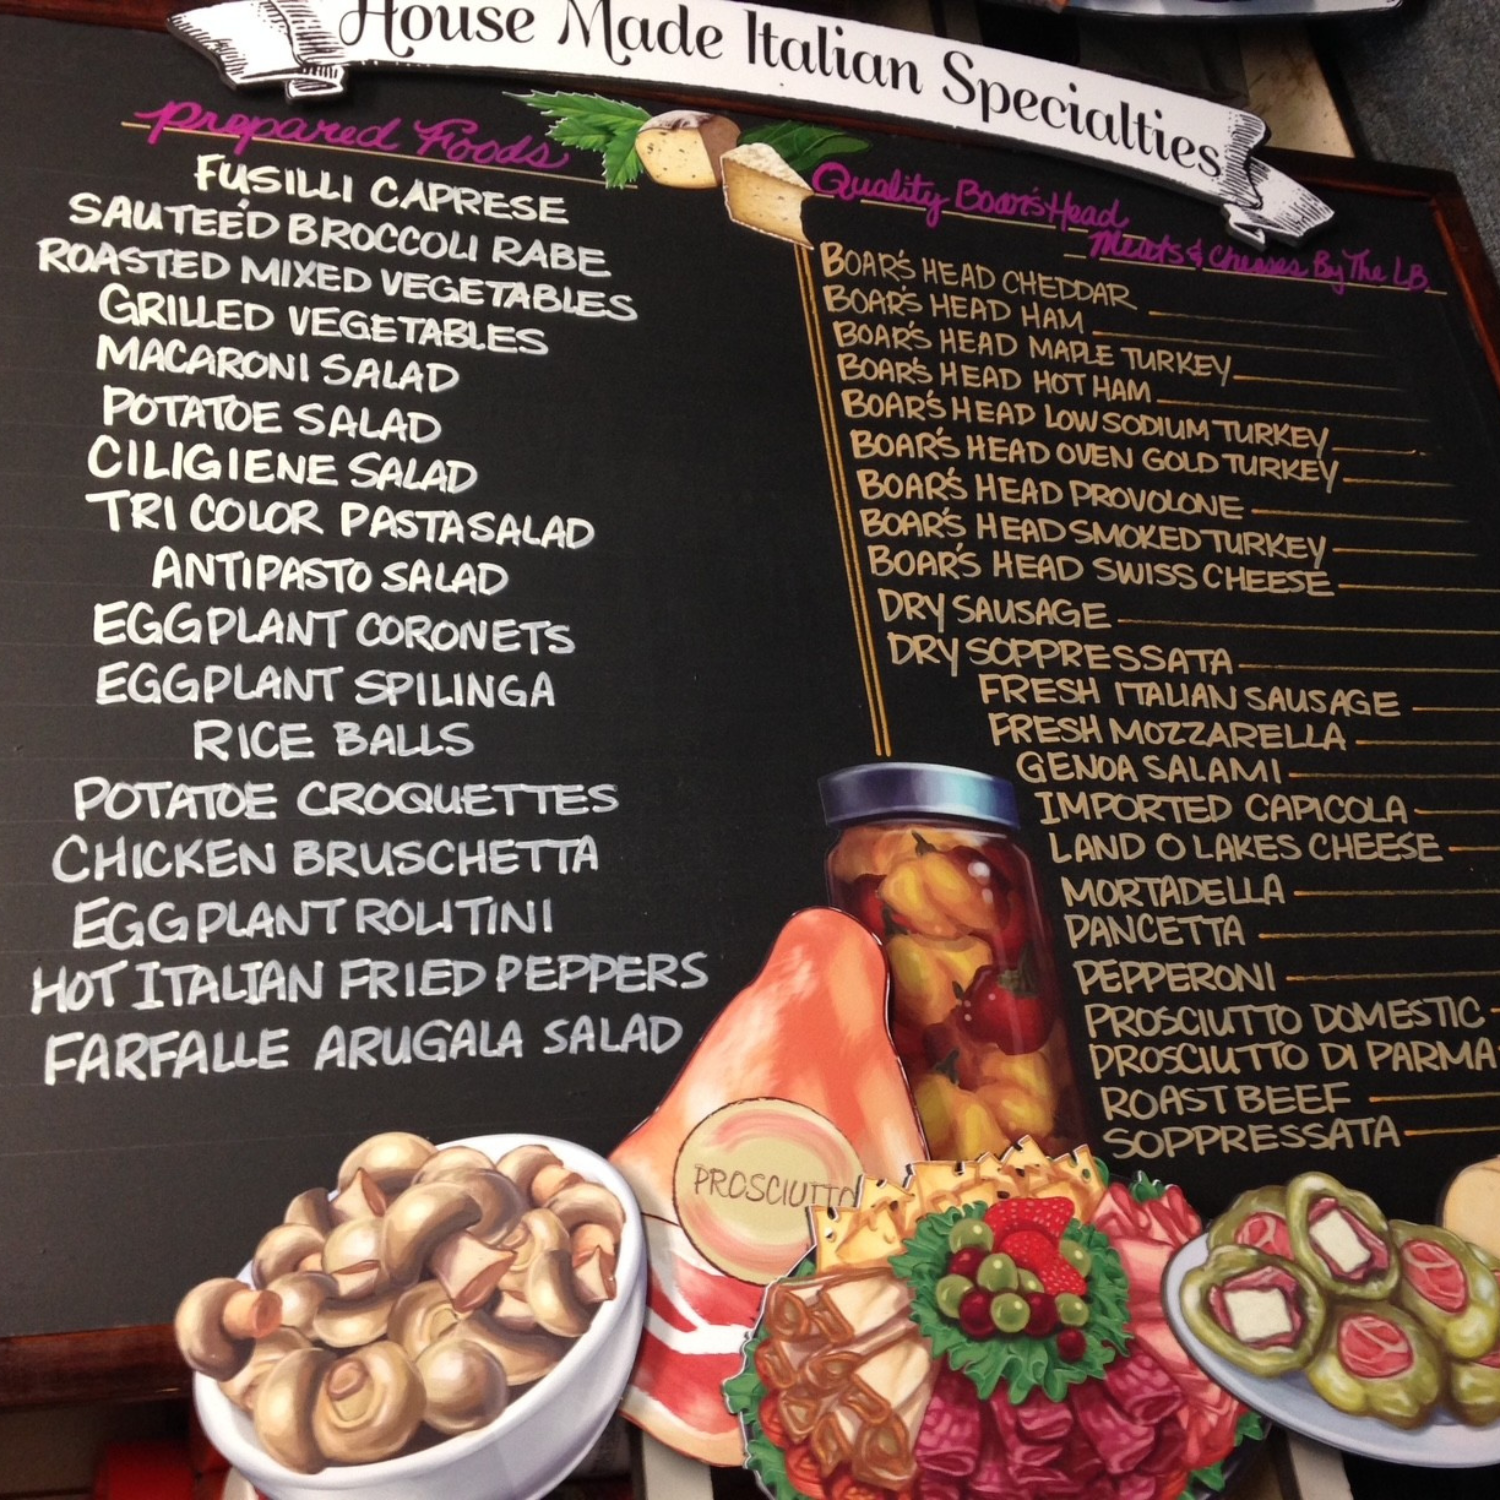 House Made Italian Specialties
Prepared Foods
FUSILLI CAPRESE
SAUTEE'D BROCCOLI RABE
ROASTED MIXED VEGETABLES
GRILLED VEGETABLES
MACARONI SALAD
POTATOE SALAD
CILIGIENE SALAD
TRI COLOR PASTA SALAD
ANTIPASTO SALAD
EGGPLANT CORONETS
EGGPLANT SPILINGA
RICE BALLS
POTATOE CROQUETTES
CHICKEN BRUSCHETTA
EGGPLANT ROLITINI
HOT ITALIAN FRIED PEPPERS
FARFALLE ARUGALA SALAD
Quality Boar's Head
Meats & Cheeses By The LB.
BOAR'S HEAD CHEDDAR
BOAR'S HEAD HAM
BOAR'S HEAD MAPLE TURKEY
BOAR'S HEAD HOT HAM
BOAR'S HEAD LOW SODIUM TURKEY
BOAR'S HEAD OVEN GOLD TURKEY
BOAR'S HEAD PROVOLONE
BOAR'S HEAD SMOKED TURKEY
BOAR'S HEAD SWISS CHEESE
DRY SAUSAGE
DRY SOPPRESSATA
FRESH ITALIAN SAUSAGE
FRESH MOZZARELLA
GENOA SALAMI
IMPORTED CAPICOLA
LAND O LAKES CHEESE
MORTADELLA
PANCETTA
PEPPERONI
PROSCIUTTO DOMESTIC
PROSCIUTTO DI PARMA
ROAST BEEF
SOPPRESSATA
PROSCIUTTO